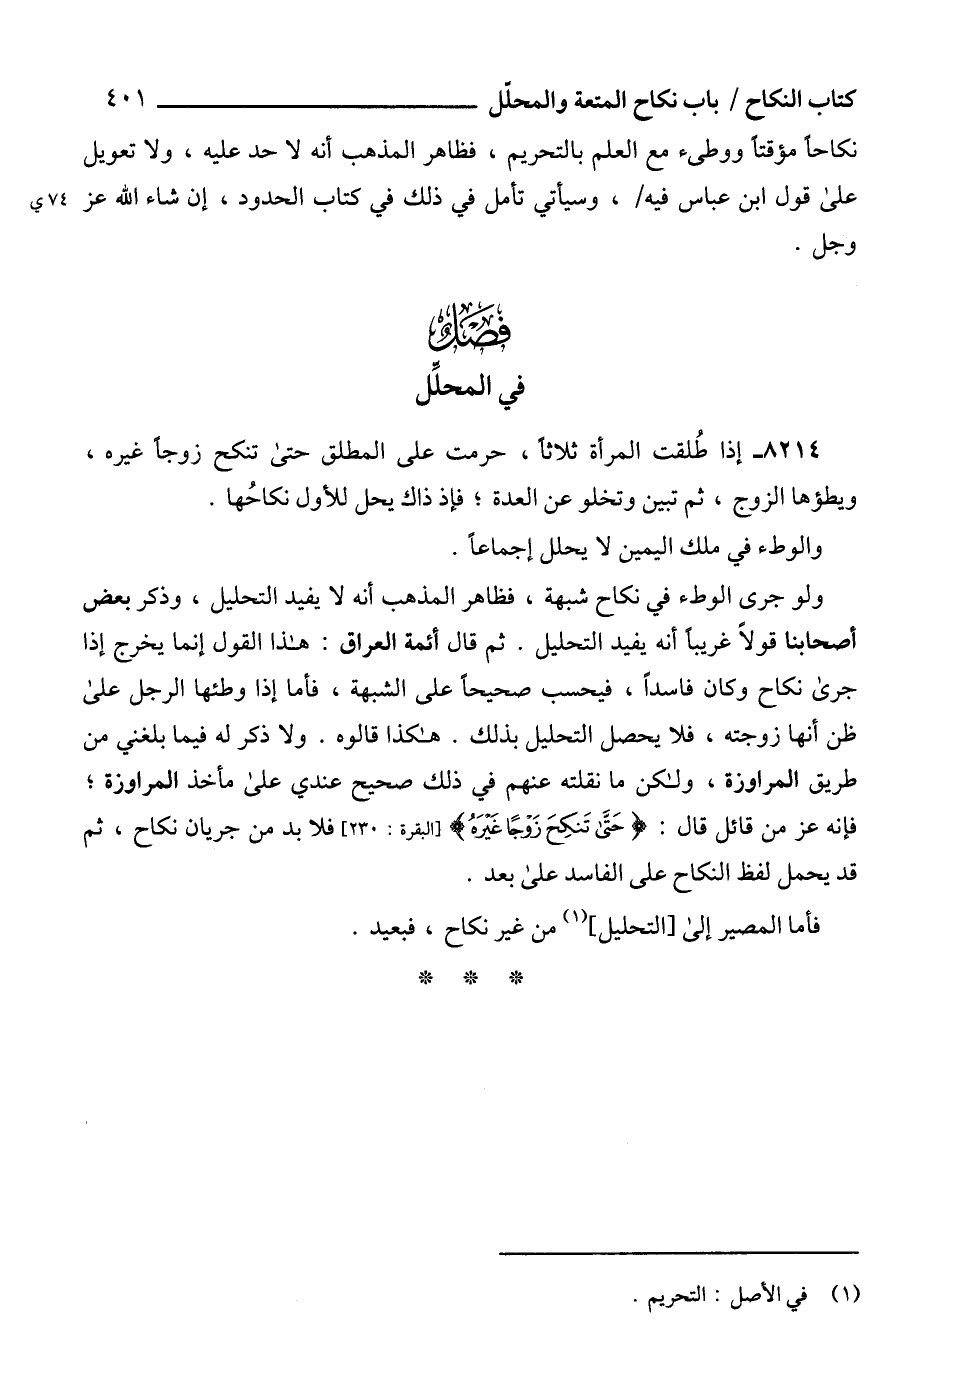 كتاب النكاح / باب نكاح المتعة والمحلّل ٤٠١
نكاحاً مؤقتاً ووطىء مع العلم بالتحريم ، فظاهر المذهب أنه لا حد عليه ، ولا تعويل
علىٰ قول ابن عباس فيه/ ، وسيأتي تأمل في ذلك في كتاب الحدود ، إن شاء الله عز ٧٤ ي
وجل .
فصل
في المحلِّل
٨٢١٤ـ إذا طُلقت المرأة ثلاثاً ، حرمت على المطلق حتىٰ تنكح زوجاً غيره ،
ويطؤها الزوج ، ثم تبين وتخلو عن العدة ؛ فإذ ذاك يحل للأول نكاحُها .
والوطء في ملك اليمين لا يحلل إجماعاً .
ولو جرى الوطء في نكاح شبهة ، فظاهر المذهب أنه لا يفيد التحليل ، وذكر بعض
أصحابنا قولاً غريباً أنه يفيد التحليل . ثم قال أئمة العراق : هـٰذا القول إنما يخرج إذا
جرىٰ نكاح وكان فاسداً ، فيحسب صحيحاً على الشبهة ، فأما إذا وطئها الرجل علىٰ
ظن أنها زوجته ، فلا يحصل التحليل بذلك . هـٰكذا قالوه . ولا ذكر له فيما بلغني من
طريق المراوزة ، ولـٰكن ما نقلته عنهم في ذلك صحيح عندي علىٰ مأخذ المراوزة ؛
فإنه عز من قائل قال : ﴿ حَتَّىٰ تَنكِحَ زَوْجًا غَيْرَهُ ﴾ [البقرة : ٢٣٠] فلا بد من جريان نكاح ، ثم
قد يحمل لفظ النكاح على الفاسد علىٰ بعد .
فأما المصير إلىٰ [التحليل](١) من غير نكاح ، فبعيد .
* * *
(١) في الأصل : التحريم .